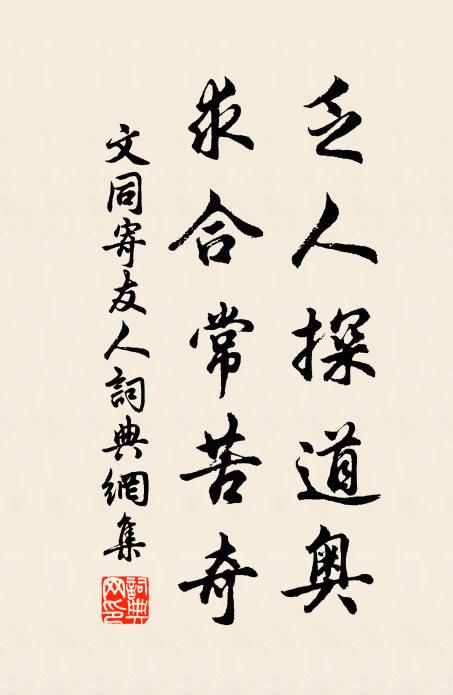 乏人探道奥
求合常苦奇
文同寄友人詞典網集
詞典网印